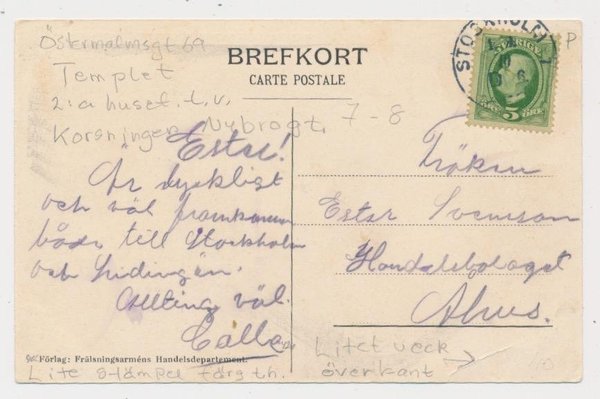 Östermalmsgt 69
Templet
2:a huset. t.v.
Korsningen Nybrogt. 7-8
P
BREFKORT
CARTE POSTALE
STOCKHOLM 1
SVERIGE
5
ÖRE
Ester!
Är lyckligt
och väl framkommen
både till Stockholm
och Lidingön.
Allting väl.
Calle
Fröken
Ester Svensson
Handelsbolaget
Åhus.
Förlag: Frälsningsarméns Handelsdepartement.
Lite stämpel färg th.
Litet veck →
överkant